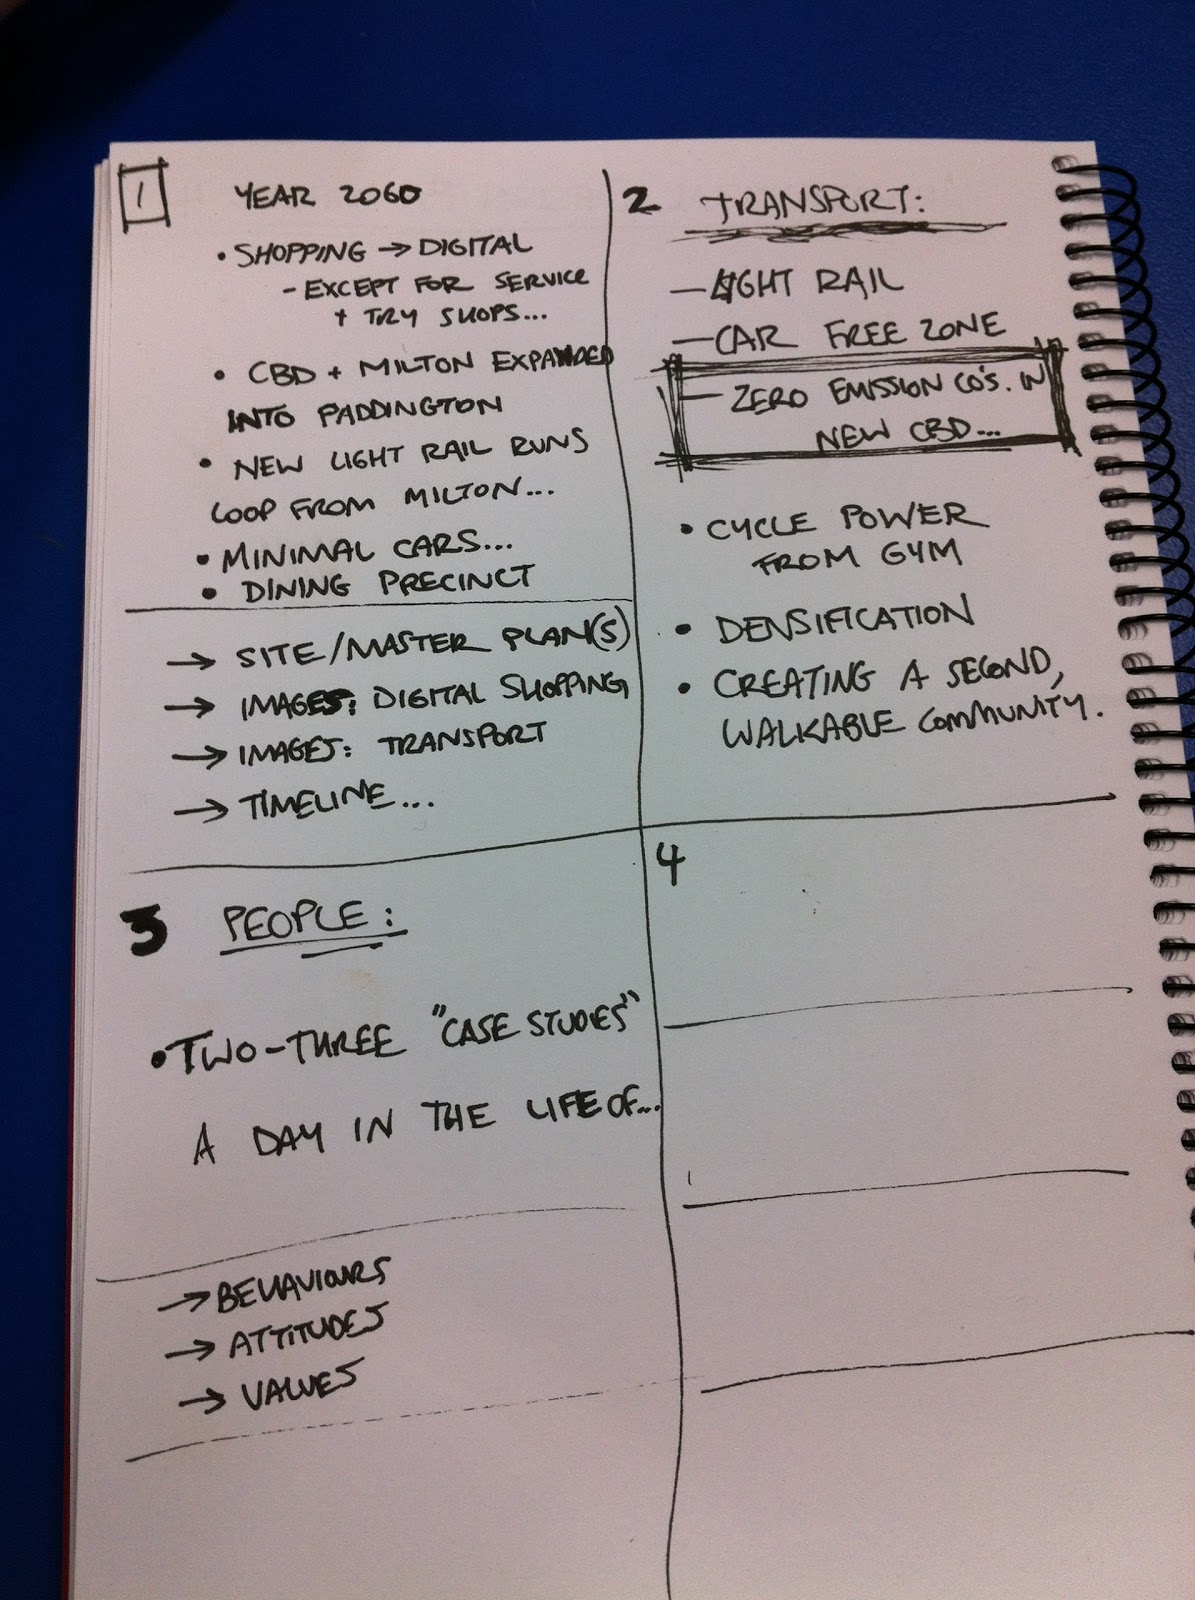 1 YEAR 2060
• SHOPPING → DIGITAL
- EXCEPT FOR SERVICE
+ TRY SHOPS...
• CBD + MILTON EXPANDED
INTO PADDINGTON
• NEW LIGHT RAIL RUNS
LOOP FROM MILTON...
• MINIMAL CARS...
• DINING PRECINCT
→ SITE/MASTER PLAN(S)
→ IMAGES: DIGITAL SHOPPING
→ IMAGES: TRANSPORT
→ TIMELINE...
2 TRANSPORT:
— LIGHT RAIL
— CAR FREE ZONE
— ZERO EMISSION CO'S. IN
NEW CBD...
• CYCLE POWER
FROM GYM
• DENSIFICATION
• CREATING A SECOND,
WALKABLE COMMUNITY.
3 PEOPLE:
• TWO-THREE "CASE STUDIES"
A DAY IN THE LIFE OF...
→ BEHAVIOURS
→ ATTITUDES
→ VALUES
4